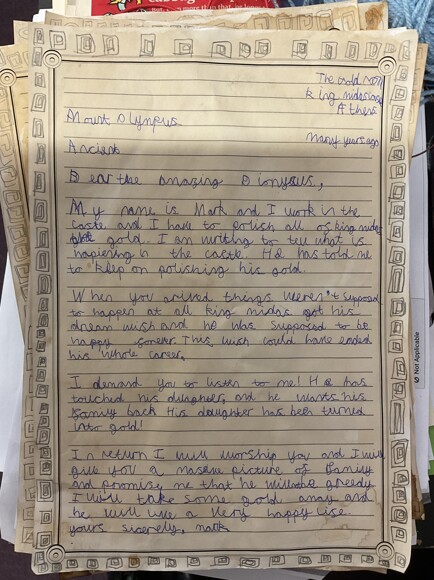 The gold room
king midas
Athens
Mount Olympus
many years ago
Ancient
Dear the amazing Dionysus,
My name is Mark and I work in the
castle and I have to polish all of king midas
gold. I am writing to tell what is
happening in the castle. He has told me
to keep on polishing his gold.
When you arrived things weren't supposed
to happen at all king midas got his
dream wish and he was supposed to be
happy forever. This wish could have ended
his whole career.
I demand you to listen to me! He has
touched his daughter, and he wants his
family back His daughter has been turned
into gold!
In return I will worship you and I will
give you a picture of family
and promise me that he will be greedy.
I will take some gold away and
he will live a very happy life.
yours sincerelly, mark
Not Applicable